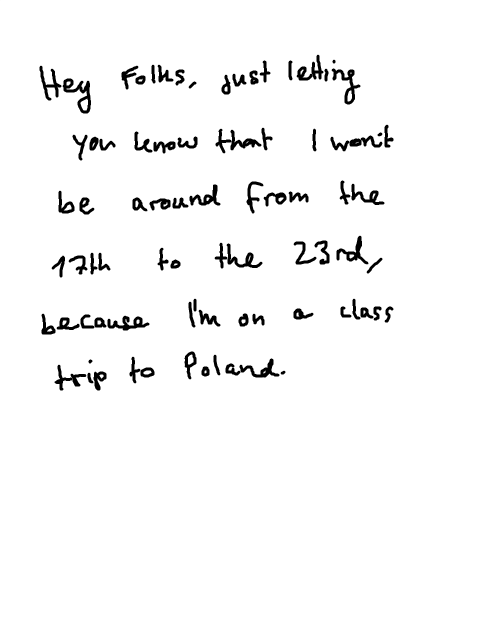 Hey Folks, just letting
you know that I won't
be around from the
17th to the 23rd,
because I'm on a class
trip to Poland.